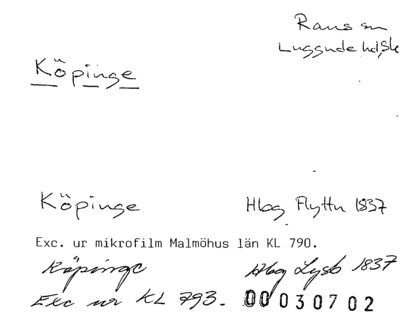 Raus sn
Luggude hd, Sk
Köpinge
Köpinge Hbg Flyttn 1837
Exc. ur mikrofilm Malmöhus län KL 790.
Köpinge Hbg Lysb 1837
Exc ur KL 793. 00030702